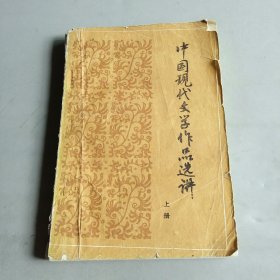 中国现代文学作品选讲
上册